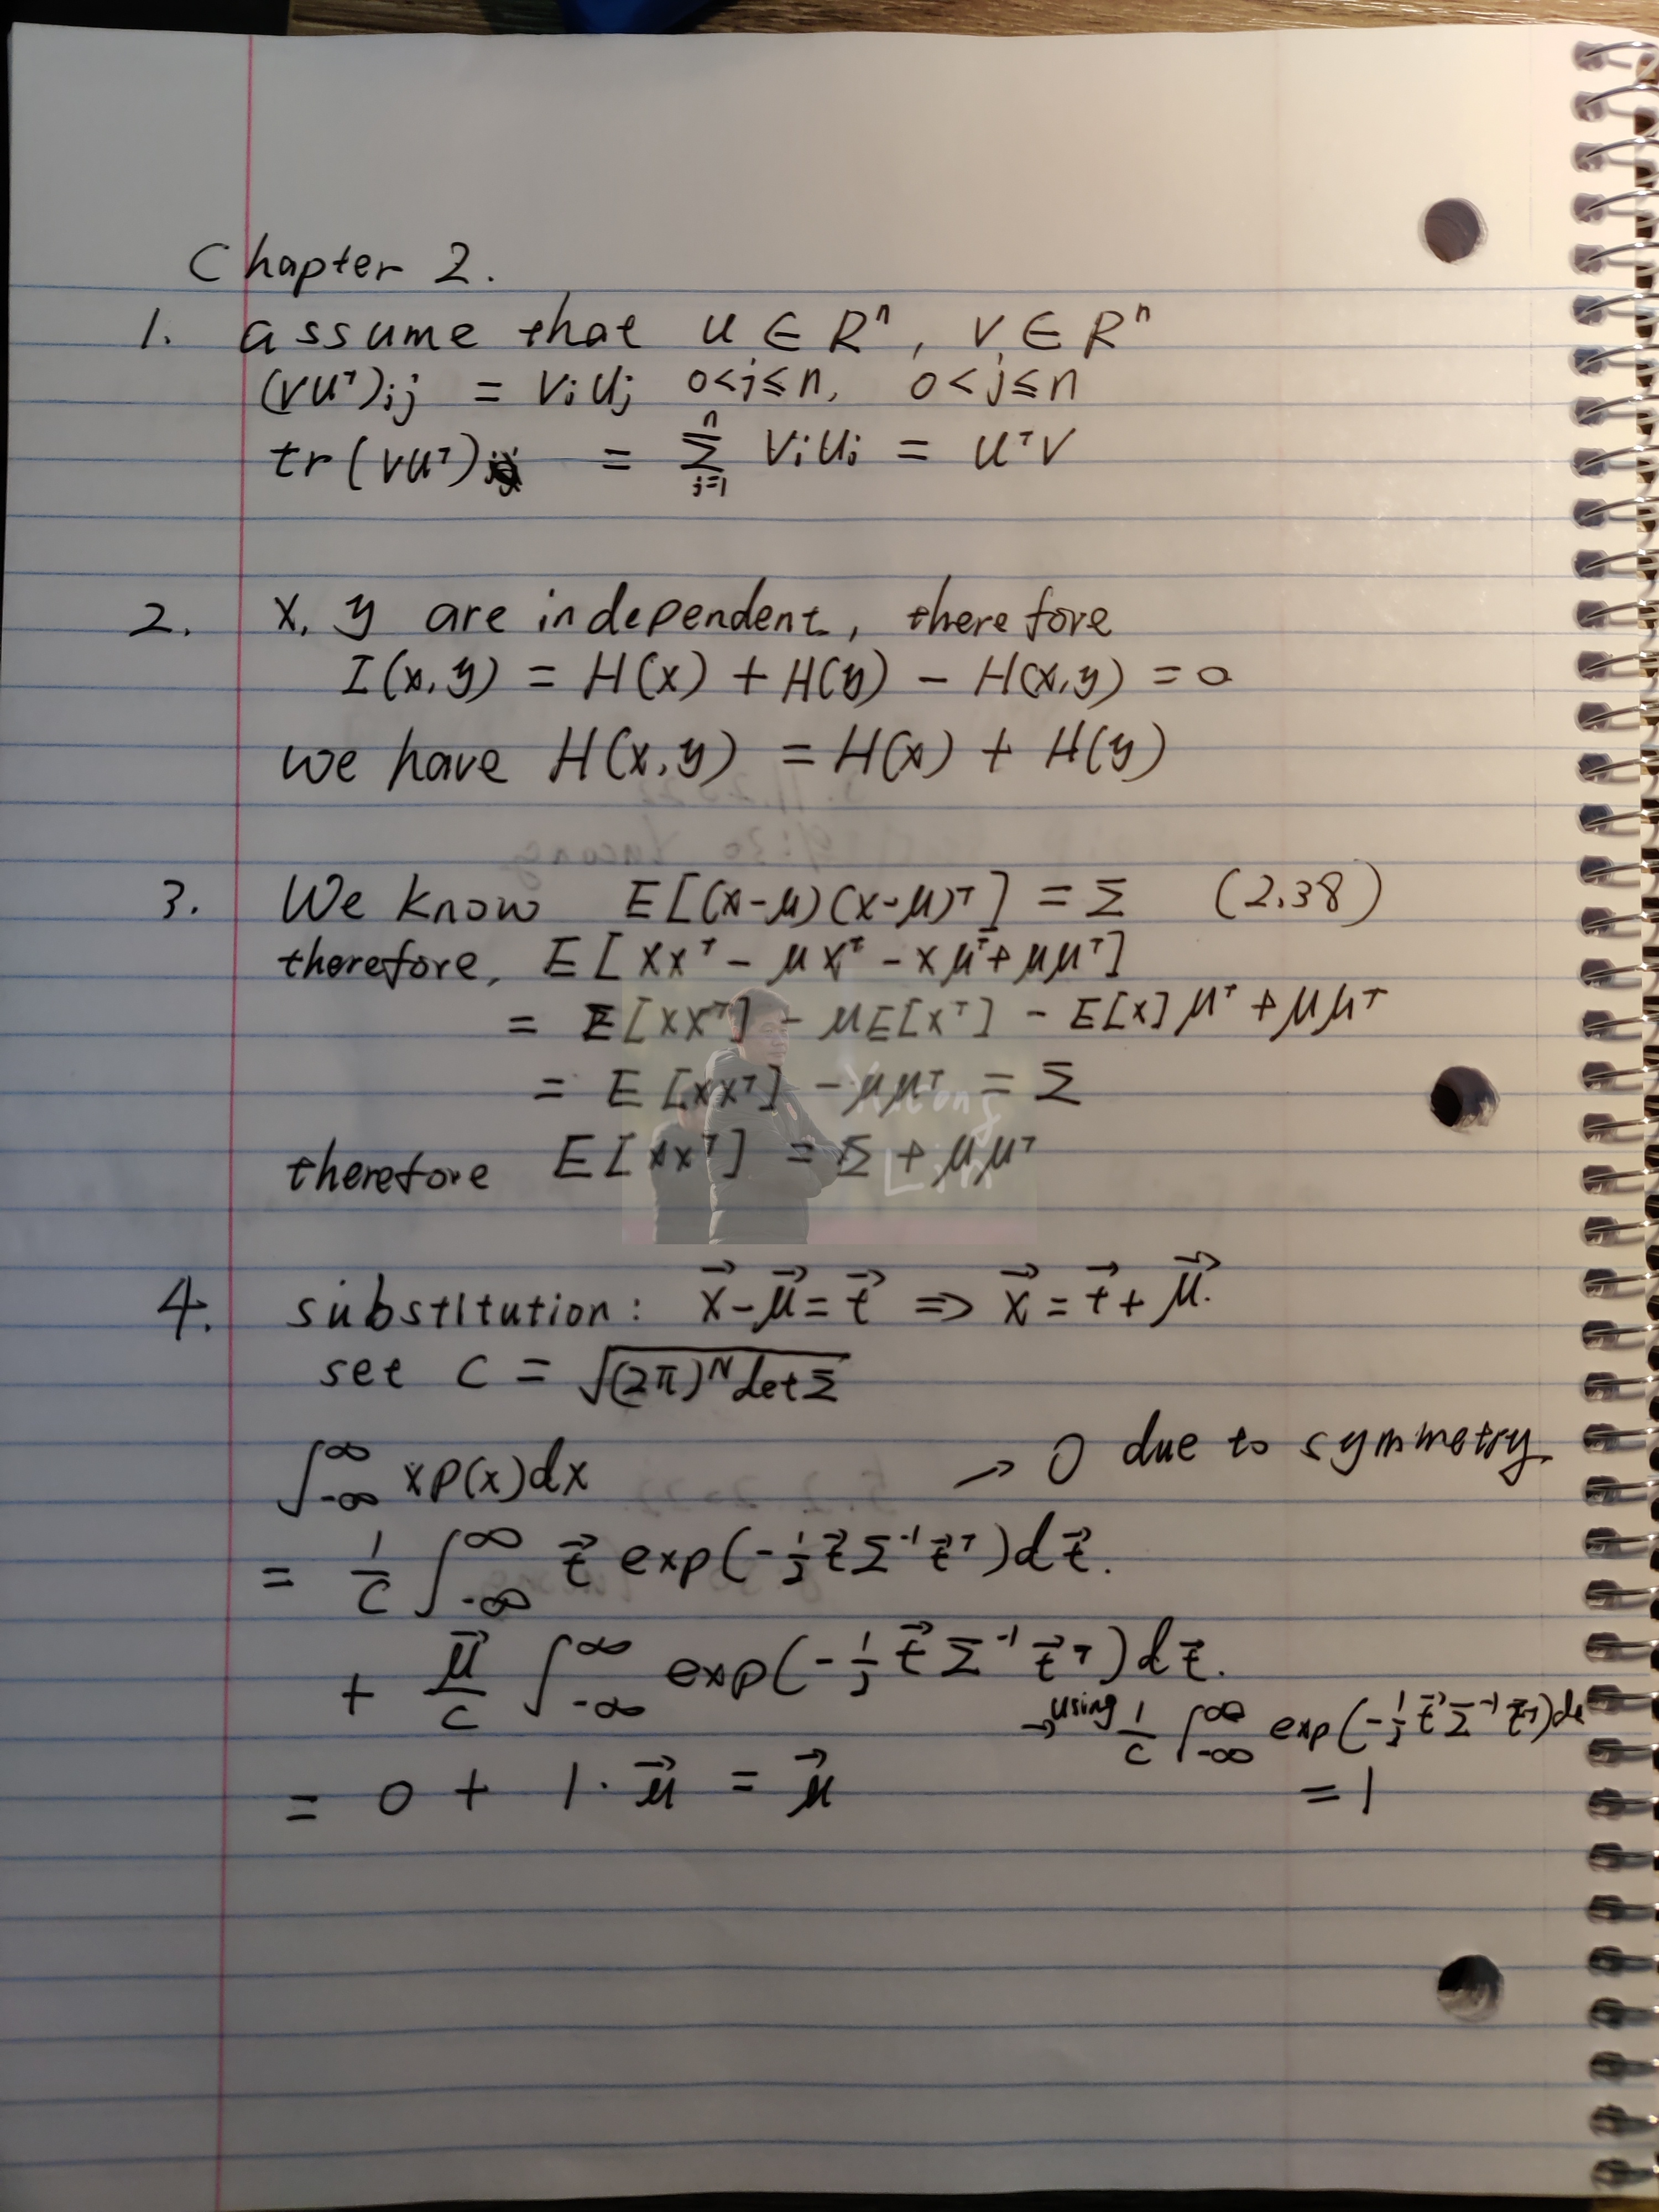 Chapter 2.
1. assume that u ∈ Rⁿ, v ∈ Rⁿ
(vuᵀ)ij = viuj 0<i≤n, 0<j≤n
tr(vuᵀ) = Σⁿⱼ₌₁ viui = uᵀv
2. x, y are independent, therefore
I(x,y) = H(x) + H(y) - H(x,y) = 0
we have H(x,y) = H(x) + H(y)
3. We know E[(x-μ)(x-μ)ᵀ] = Σ (2.38)
therefore, E[xxᵀ - μxᵀ - xμᵀ + μμᵀ]
= E[xxᵀ] - μE[xᵀ] - E[x]μᵀ + μμᵀ
= E[xxᵀ] - μμᵀ = Σ
therefore E[xxᵀ] = Σ + μμᵀ
4. substitution: x⃗-μ⃗=t⃗ => x⃗=t⃗+μ⃗.
set c = √((2π)ᴺdetΣ)
∫_-∞^∞ xp(x)dx → 0 due to symmetry
= 1/c ∫_-∞^∞ t⃗ exp(-½t⃗Σ⁻¹t⃗ᵀ)dt⃗.
+ μ⃗/c ∫_-∞^∞ exp(-½t⃗Σ⁻¹t⃗ᵀ)dt⃗.
→ using 1/c ∫_-∞^∞ exp(-½t⃗Σ⁻¹t⃗ᵀ)dt
= 0 + 1·μ⃗ = μ⃗ = 1